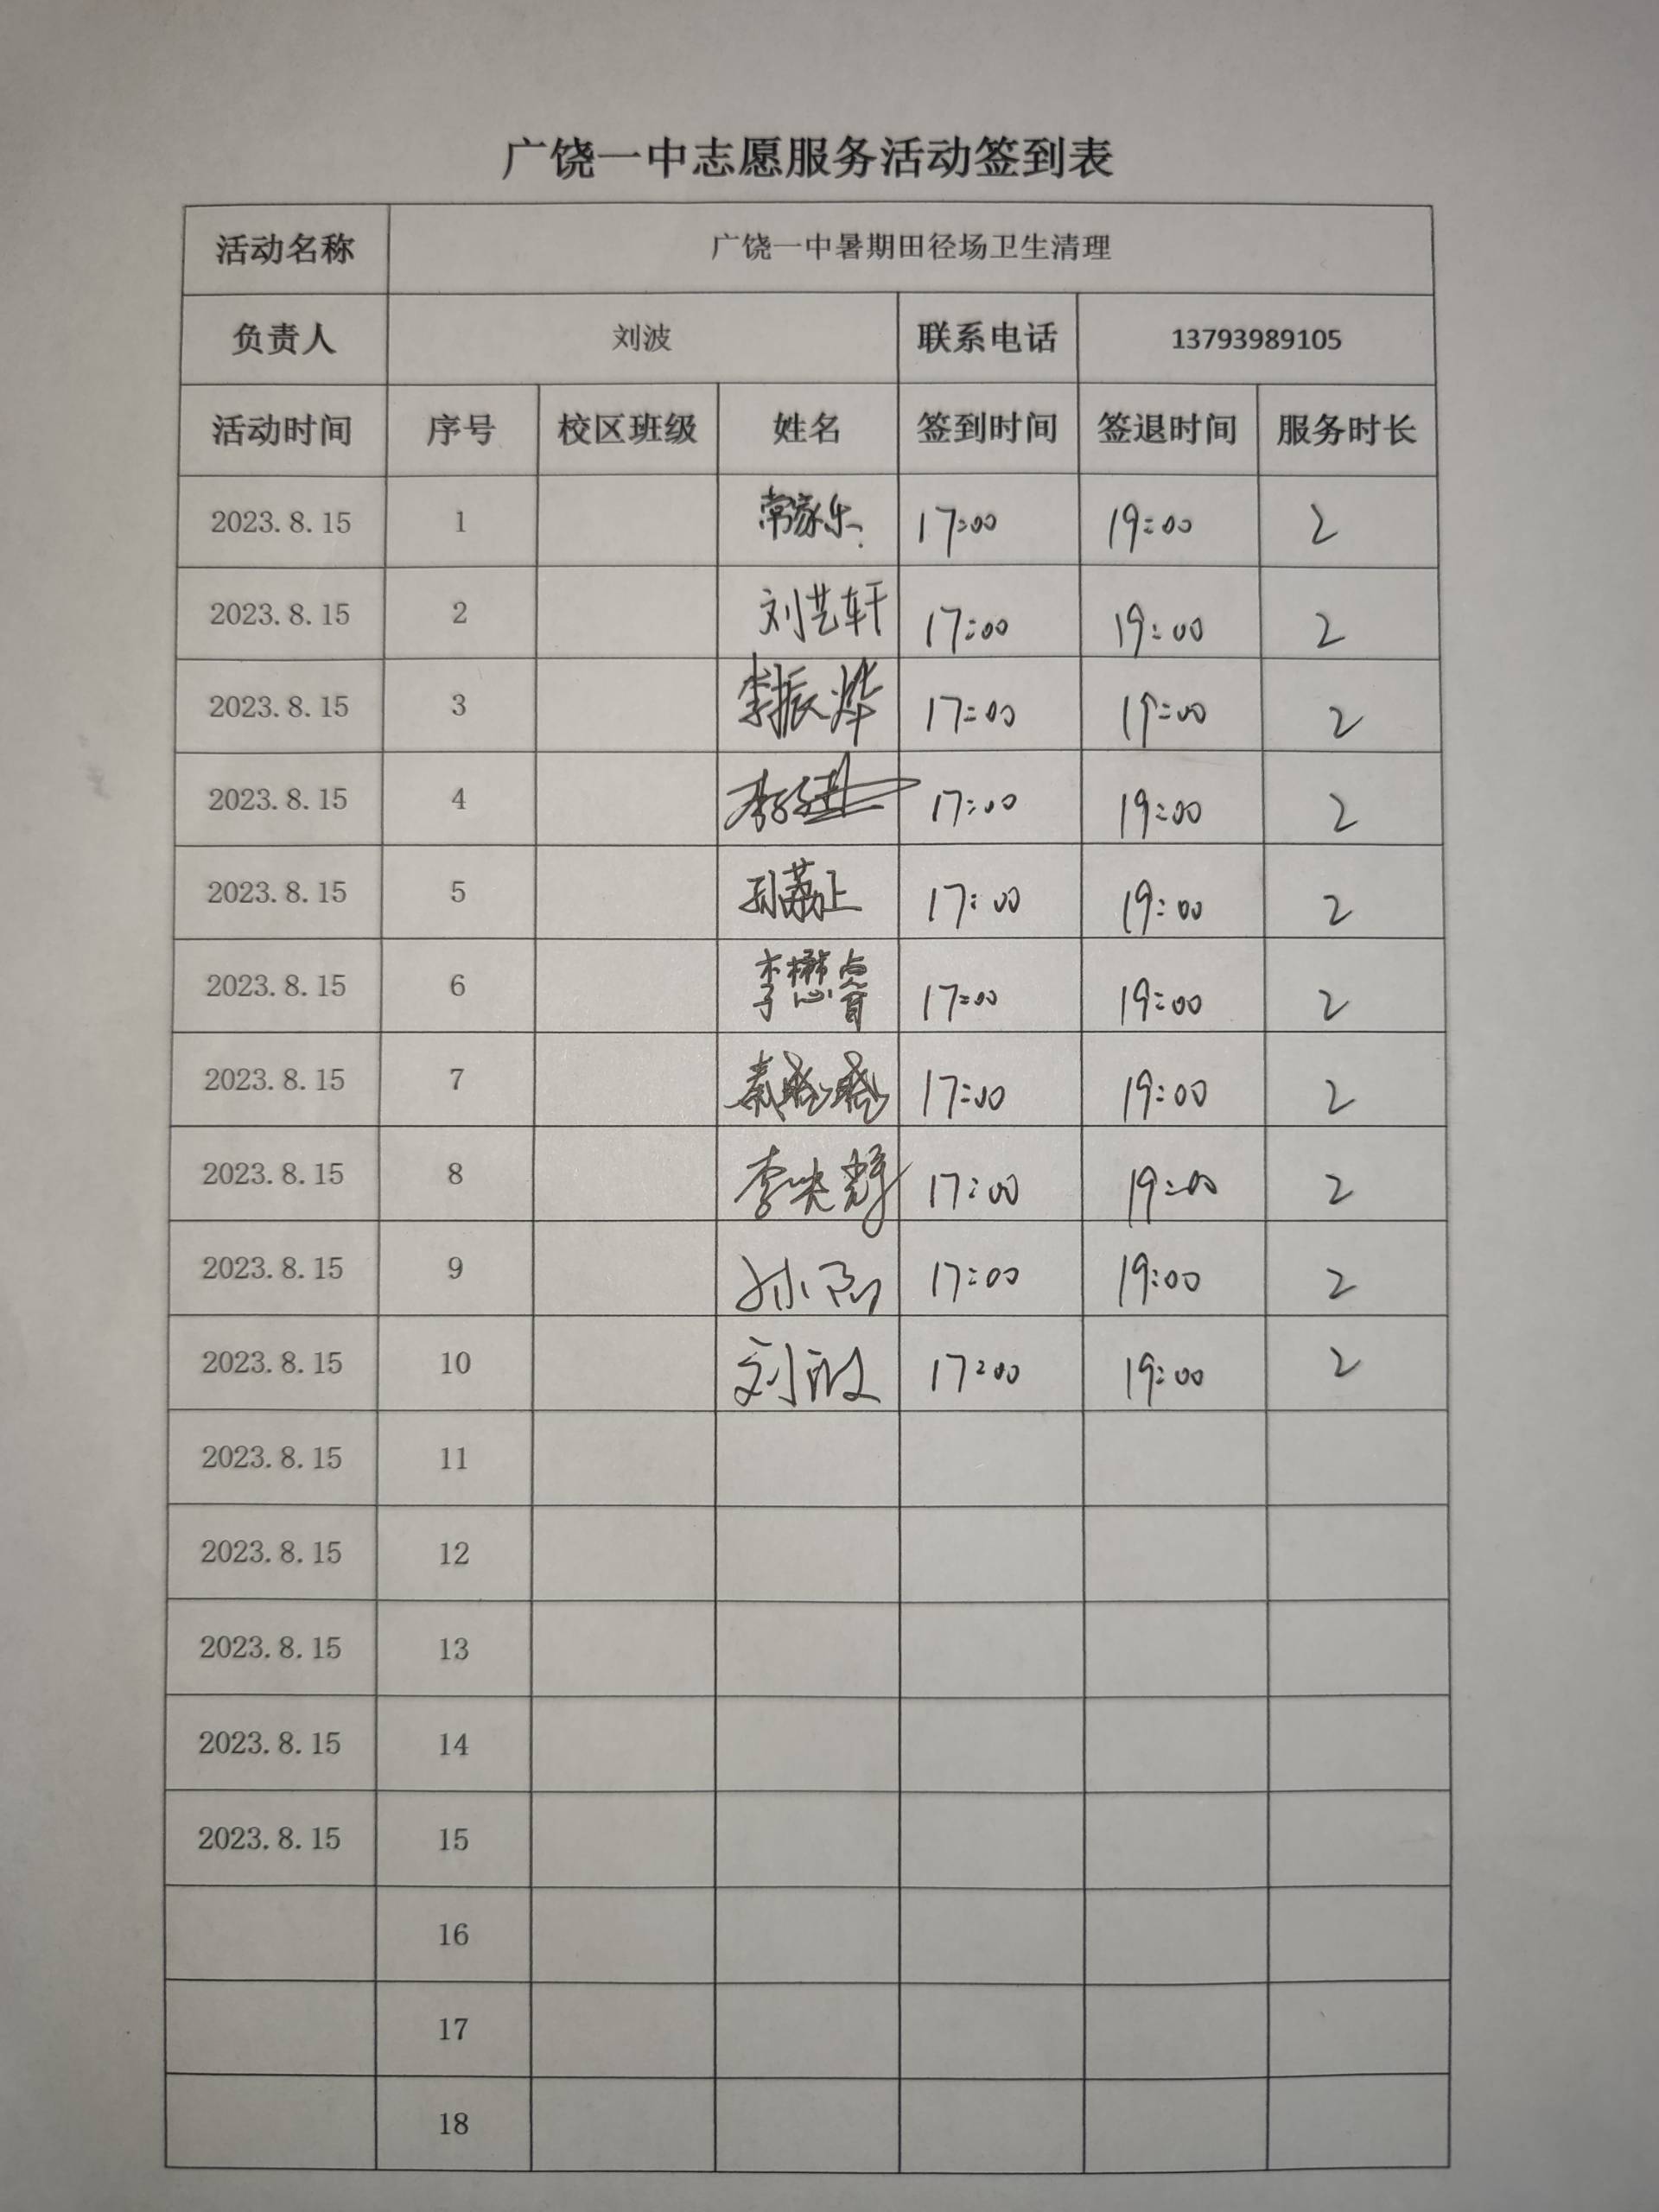 广饶一中志愿服务活动签到表
活动名称 广饶一中暑期田径场卫生清理
负责人 刘波 联系电话 13793989105
活动时间 序号 校区班级 姓名 签到时间 签退时间 服务时长
2023.8.15 1 常家乐 17:00 19:00 2
2023.8.15 2 刘艺轩 17:00 19:00 2
2023.8.15 3 李振烨 17:00 19:00 2
2023.8.15 4 17:00 19:00 2
2023.8.15 5 17:00 19:00 2
2023.8.15 6 李懋睿 17:00 19:00 2
2023.8.15 7 秦盛盛 17:00 19:00 2
2023.8.15 8 李映辉 17:00 19:00 2
2023.8.15 9 17:00 19:00 2
2023.8.15 10 刘波 17:00 19:00 2
2023.8.15 11
2023.8.15 12
2023.8.15 13
2023.8.15 14
2023.8.15 15
16
17
18